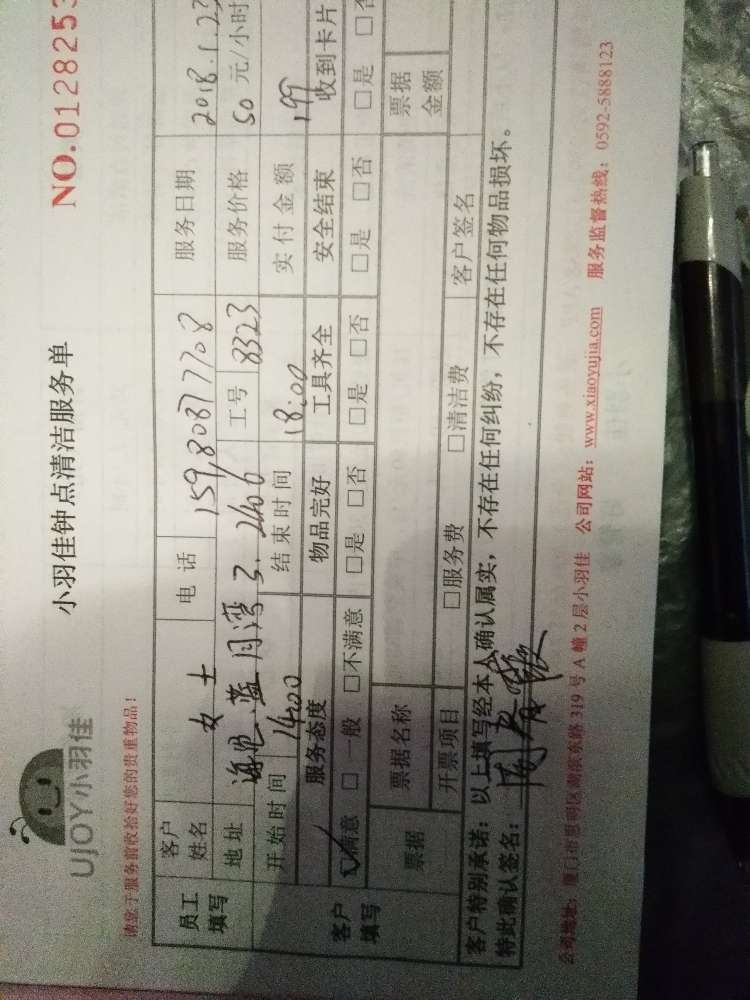 UJOY小羽佳
小羽佳钟点清洁服务单
NO.0128253
请您于服务前收拾好您的贵重物品!
员工填写 客户姓名 女士 电话 15980877708 服务日期 2018.1.23
地址 蓝月湾 3.2406 工号 8323 服务价格 50元/小时
开始时间 14:00 结束时间 18:00 实付金额 199
客户填写 服务态度 物品完好 工具齐全 安全结束 收到卡片
☑满意 □一般 □不满意 □是 □否 □是 □否 □是 □否 □是 □否
票据 票据名称 票据金额
开票项目 □服务费 □清洁费 客户签名
客户特别承诺:以上填写经本人确认属实,不存在任何纠纷,不存在任何物品损坏。
特此确认签名:
公司地址:厦门市思明区湖滨东路319号A幢2层小羽佳 公司网站:www.xiaoyujia.com 服务监督热线:0592-5888123